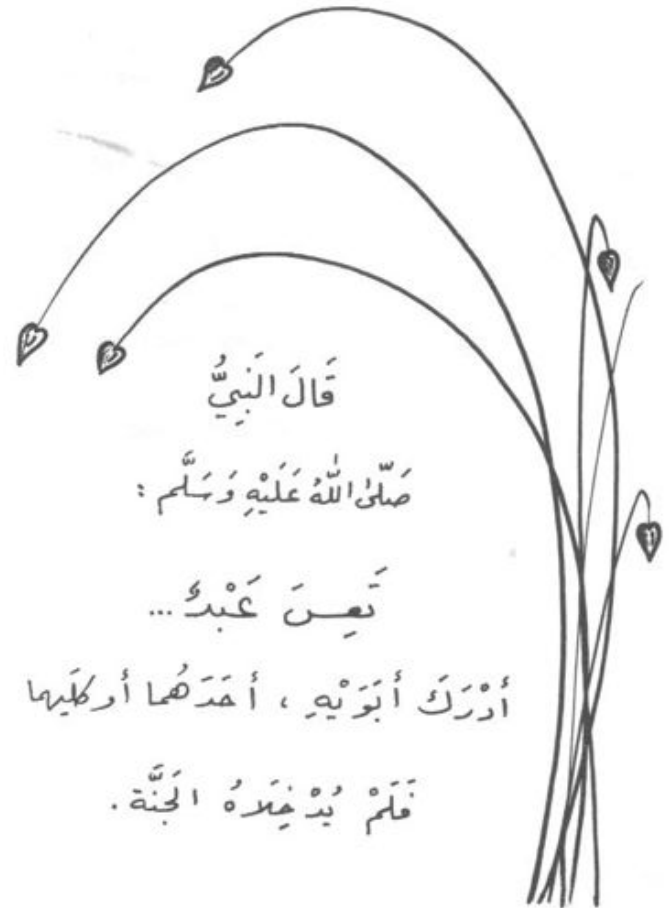 قَالَ النَبِيُّ
صَلّىٰ اللّٰهُ عَلَيْهِ وَسَلَّم :
تَعِسَ عَبْدٌ ...
أدْرَكَ أبَوَيْهِ ، أحَدَهُما أو كلَيهما
فَلَمْ يُدْخِلَاهُ الجَنَّة .